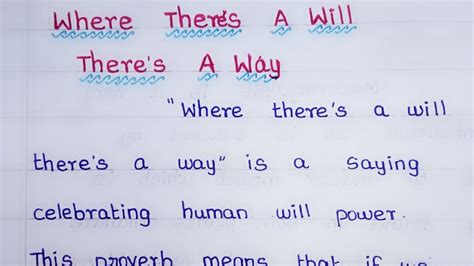 Where There's A Will
There's A Way
"Where there's a will
there's a way" is a saying
celebrating human will power.
This proverb means that if we